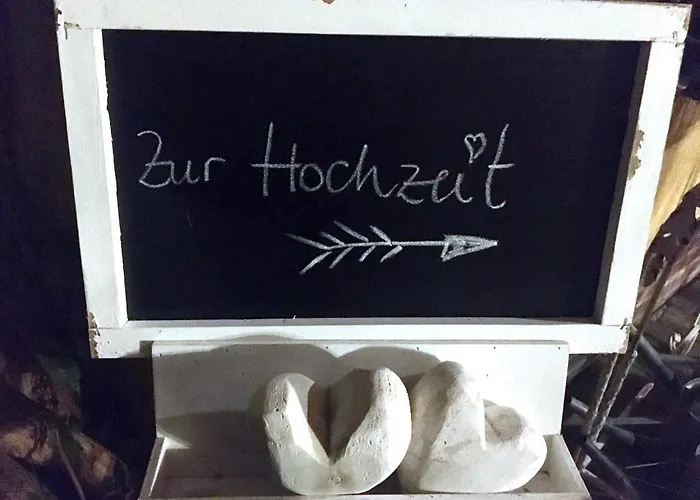 Zur Hochzeit